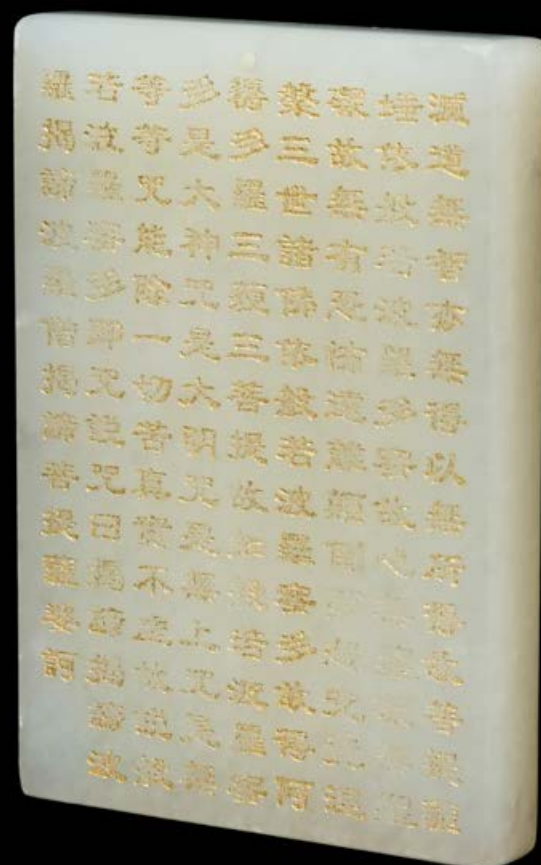 滅道無智亦無得以無所得故菩提薩
埵依般若波羅蜜多故心無罣礙無罣
礙故無有恐怖遠離顛倒夢想究竟涅
槃三世諸佛依般若波羅蜜多故得阿
耨多羅三藐三菩提故知般若波羅蜜
多是大神咒是大明咒是無上咒是無
等等咒能除一切苦真實不虛故說般
若波羅蜜多即咒說咒曰揭諦揭諦波
羅揭諦波羅僧揭諦菩提薩婆訶